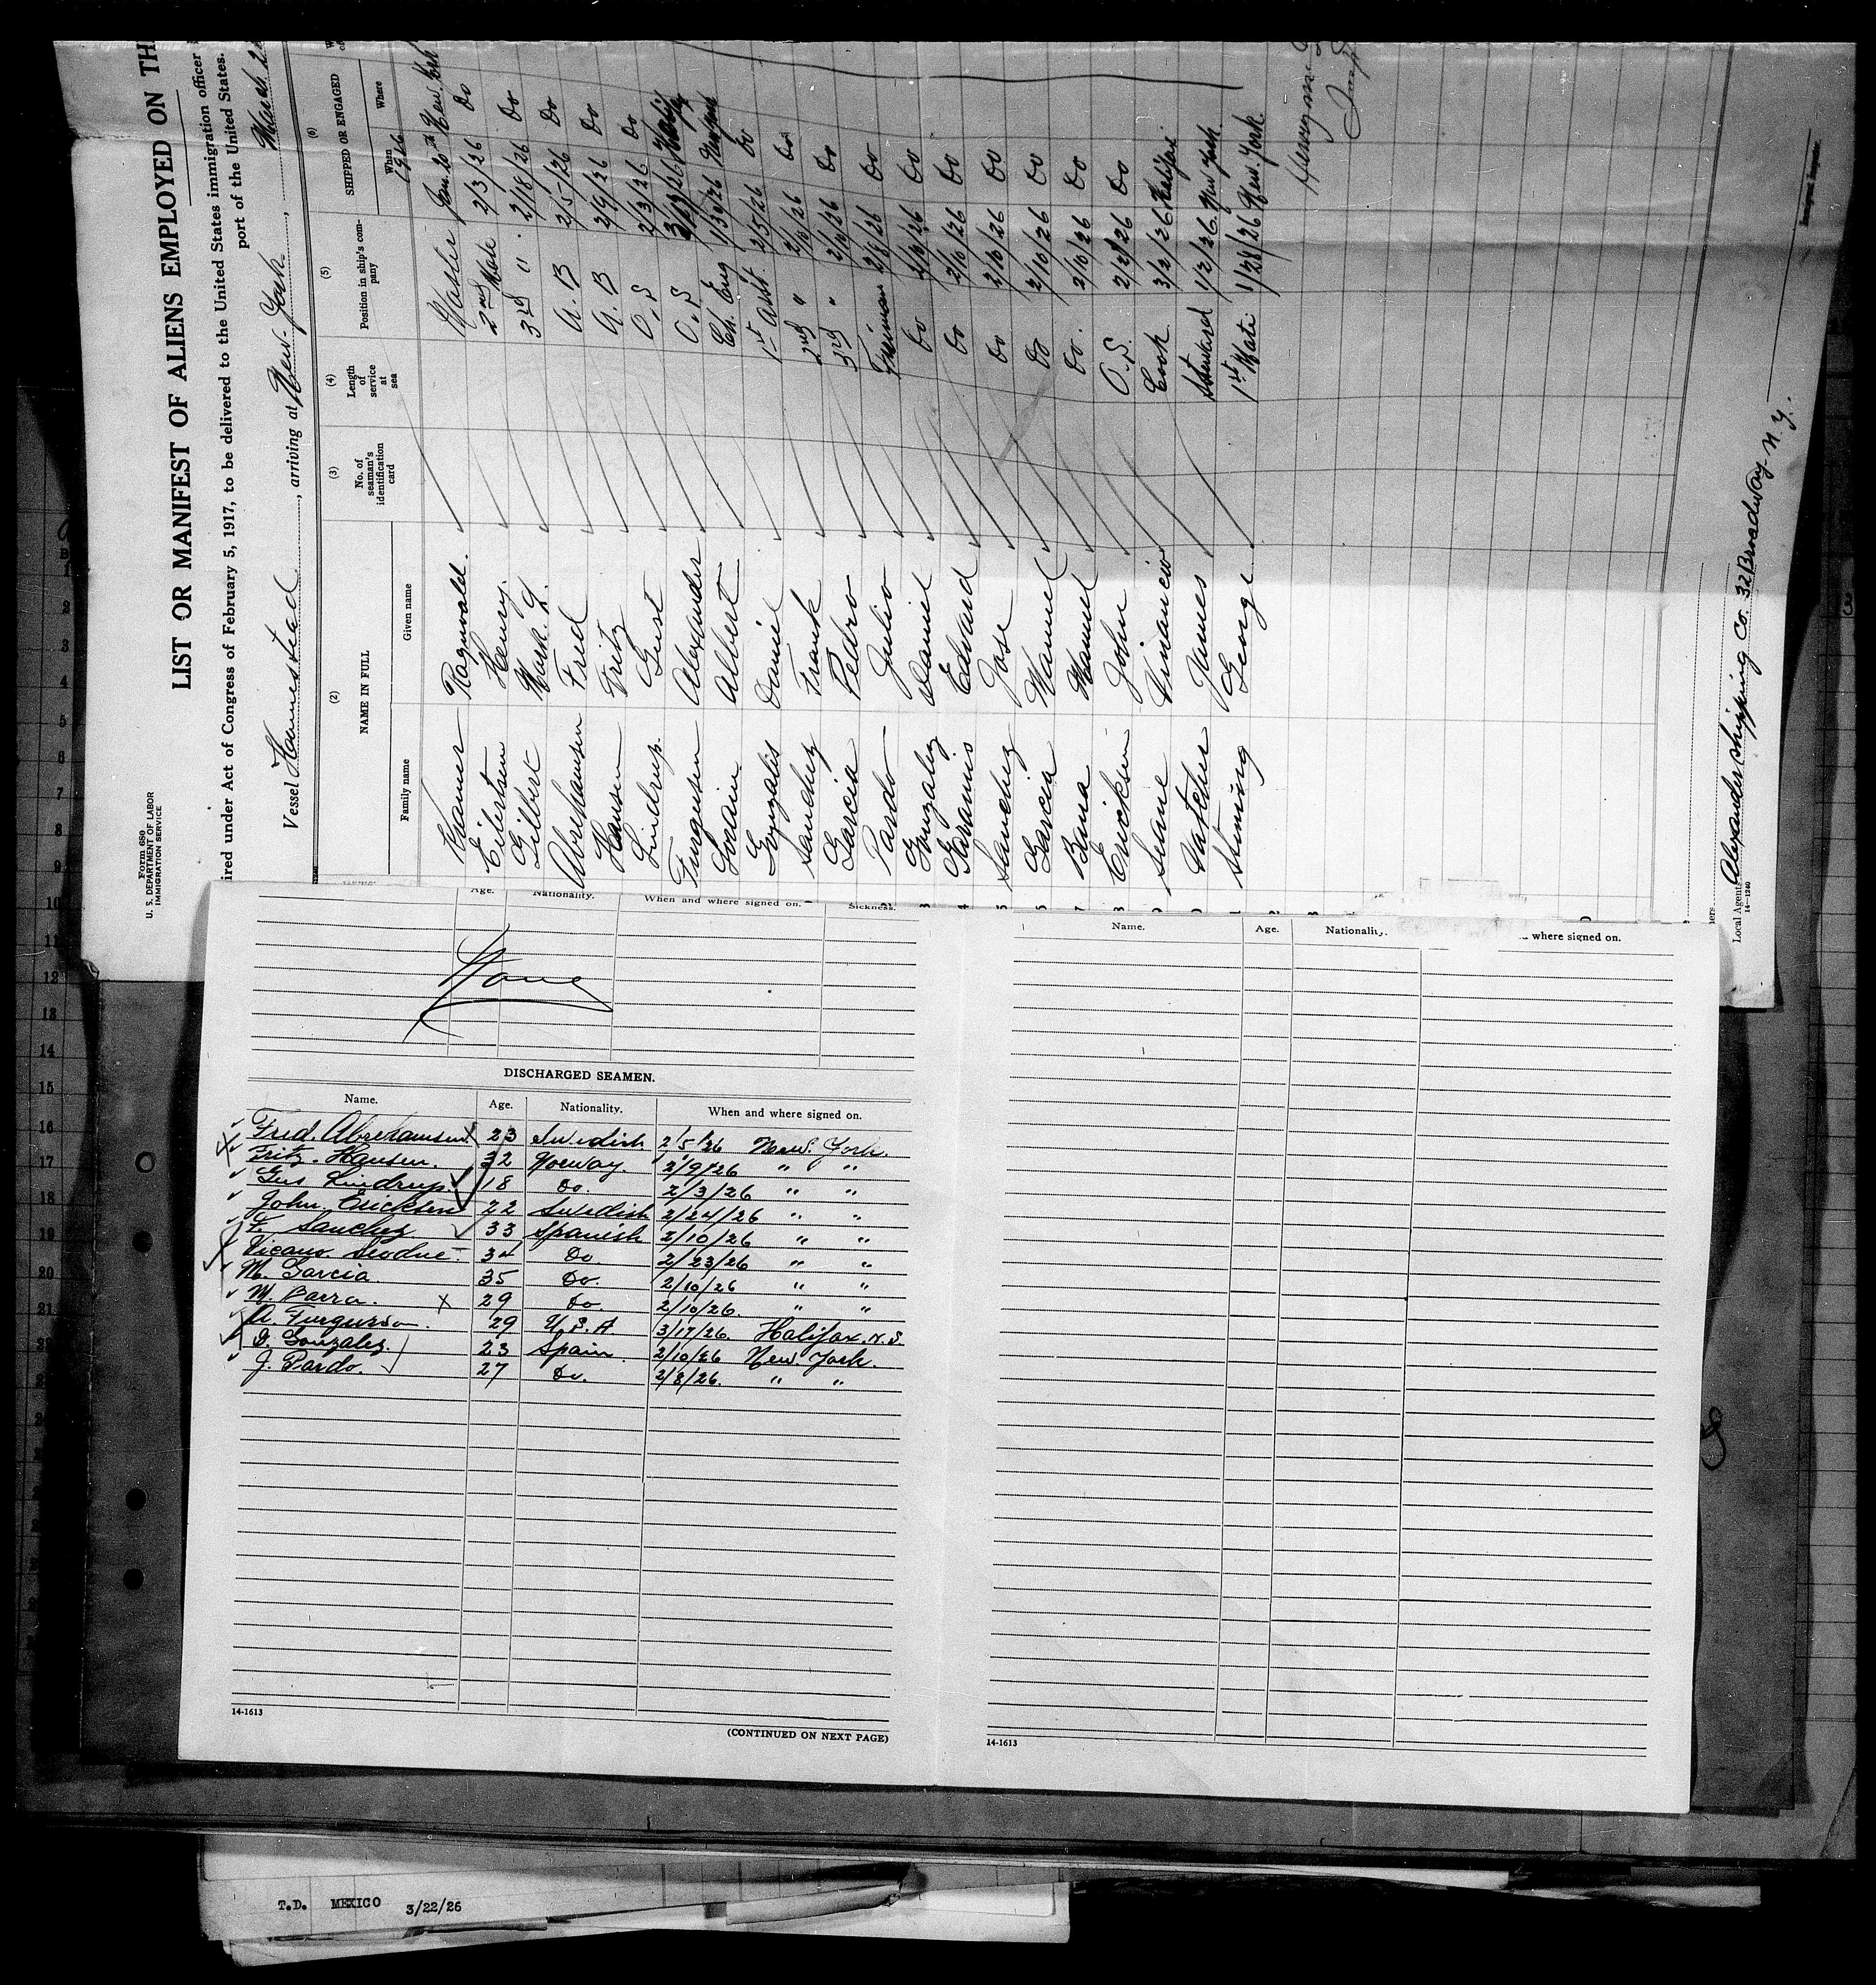 Form 680
U. S. DEPARTMENT OF LABOR
IMMIGRATION SERVICE
LIST OR MANIFEST OF ALIENS EMPLOYED ON TH
ired under Act of Congress of February 5, 1917, to be delivered to the United States immigration officer
port of the United States.
Vessel Homestead, arriving at New York, March
(2) (3) (4) (5) (6)
NAME IN FULL No. of seaman's identification card Length of service at sea Position in ship's company SHIPPED OR ENGAGED
Family name Given name When Where
1926
Kramer Ragnvald. Master Jan. 20th New York
Eilertsen Henry 2nd Mate 2/3/26 Do
Gilbert Mark. L. 3rd " 2/18/26 Do
Abrehamsen Fred A. B 2/5/26 Do
Hansen Fritz A. B 2/9/26 Do
Lindrup. Gust O. S 2/3/26 Do
Furgusen Alexander O. S
Albert Ch. Eng 1/30/26 New York
Gonzalis Daniel 1st Asst. 2/5/26 Do
Sanchez Frank 2nd " 2/10/26 Do
Garcia Pedro 3rd " 2/10/26 Do
Pardo Julio Fireman 2/8/26 Do
Gonzalez Daniel Do 2/10/26 Do
Edvard Do 2/10/26 Do
Sanchez Jose Do 2/10/26 Do
Garcia Manuel Do 2/10/26 Do
Manuel Do. 2/10/26 Do
Ericksen John O. S. 2/24/26 Do
Seane Cook 3/2/26 Halifax
Hatcher James Steward 1/2/26 New York.
George 1st Mate 1/28/26 New. York.
Local Agents Alexander Shipping Co. 32 Broadway N.Y.
14—1240
Age. Nationality. When and where signed on. Sickness.
None
DISCHARGED SEAMEN.
Name. Age. Nationality. When and where signed on.
Fred. Abrehamsen 23 Swedish 2/5/26 New. York.
Fritz. Hansen. 32 Norway. 2/9/26 " "
Gus Lindrup. 18 Do. 2/3/26 " "
John. Ericksen 22 Swedish 2/24/26 " "
F. Sanchez 33 Spanish 2/10/26 " "
34 Do. 2/23/26 " "
M. Garcia 35 Do. 2/10/26 " "
M. Barra. 29 Do. 2/10/26. " "
A. Furguson. 29 U. S. A 3/17/26. Halifax. N. S.
D. Gonzalez. 23 Spain 2/10/26 New. York.
J. Pardo. 27 Do. 2/8/26. " "
14-1613
(CONTINUED ON NEXT PAGE)
Name. Age. Nationality. where signed on.
14-1613
T.D. MEXICO 3/22/26